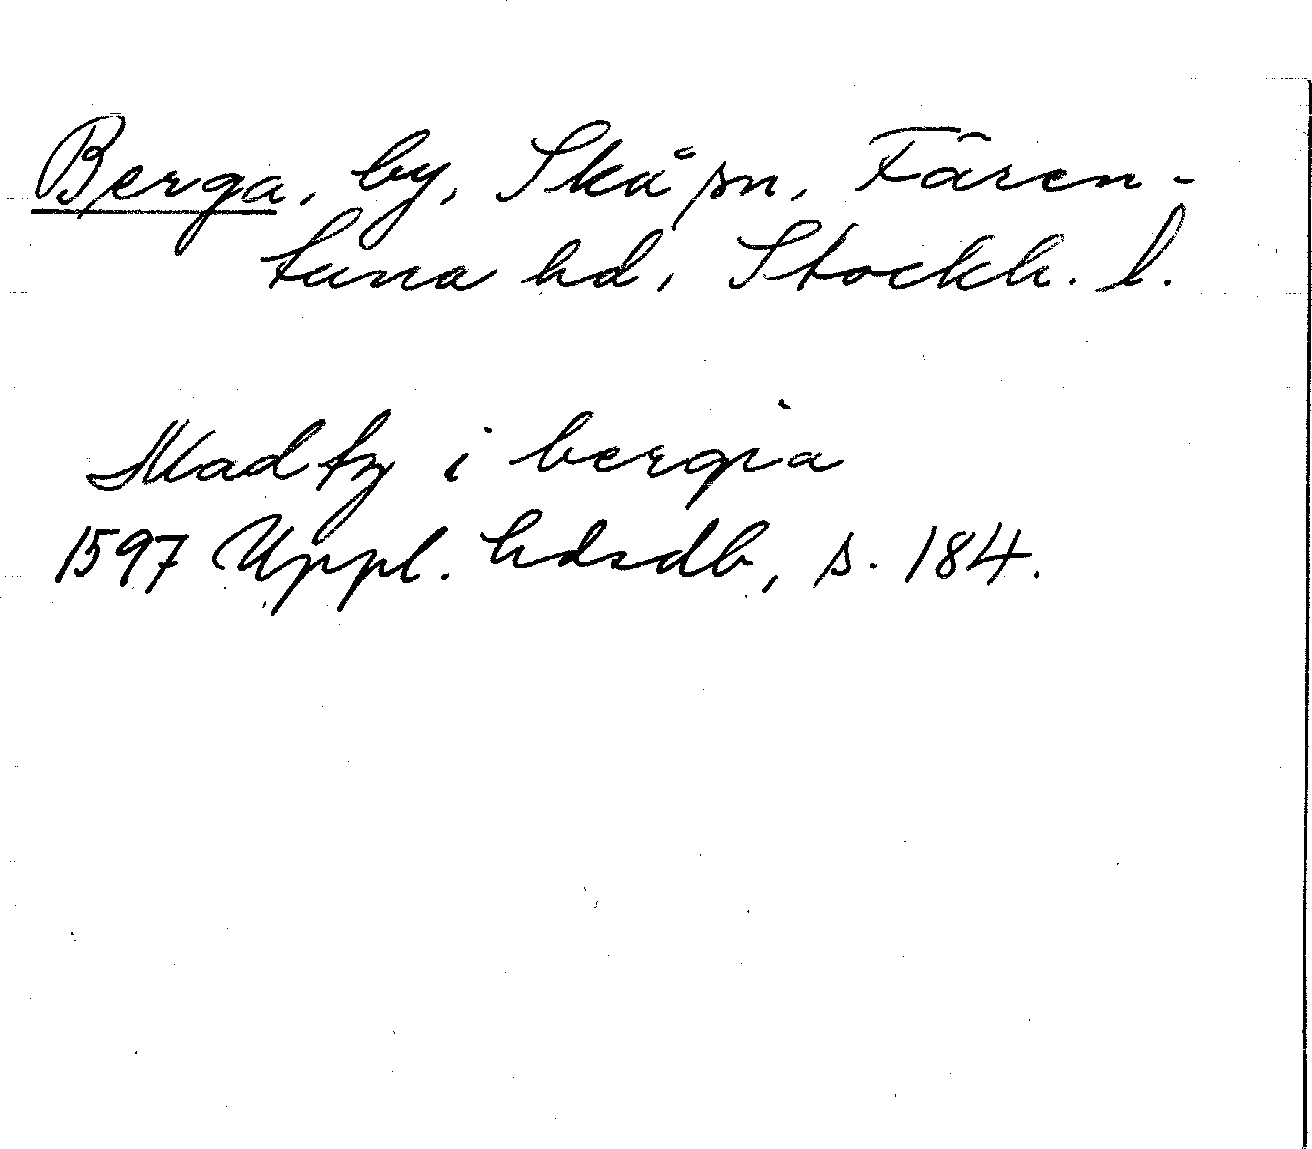 Berga, by, Skå sn, Fären-
tuna hd, Stockh. l.
Madtz i bergia
1597 Uppl. hdsdb, s. 184.